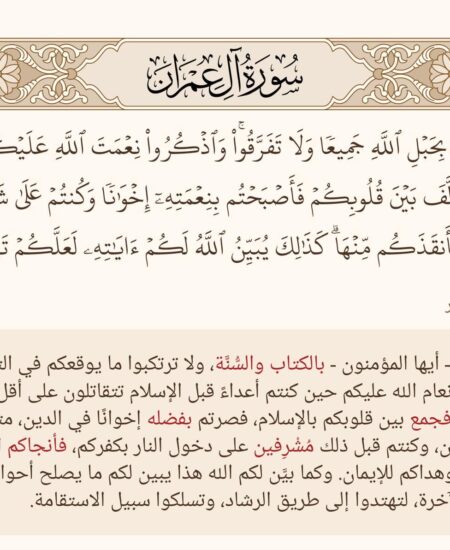 سُورَةُ آلِ عِمْرَان
بِحَبْلِ ٱللَّهِ جَمِيعًا وَلَا تَفَرَّقُوا۟ ۚ وَٱذْكُرُوا۟ نِعْمَتَ ٱللَّهِ عَلَيْكُ
لَّفَ بَيْنَ قُلُوبِكُمْ فَأَصْبَحْتُم بِنِعْمَتِهِۦٓ إِخْوَٰنًا وَكُنتُمْ عَلَىٰ شَ
أَنقَذَكُم مِّنْهَا ۗ كَذَٰلِكَ يُبَيِّنُ ٱللَّهُ لَكُمْ ءَايَـٰتِهِۦ لَعَلَّكُمْ تَ
- أيها المؤمنون - بالكتاب والسُّنَّة، ولا ترتكبوا ما يوقعكم في الت
نعام الله عليكم حين كنتم أعداءً قبل الإسلام تتقاتلون على أقل
فجمع بين قلوبكم بالإسلام، فصرتم بفضله إخوانًا في الدين، مت
ن، وكنتم قبل ذلك مُشْرِفين على دخول النار بكفركم، فأنجاكم ا
وهداكم للإيمان. وكما بيَّن لكم الله هذا يبين لكم ما يصلح أحوا
آخرة، لتهتدوا إلى طريق الرشاد، وتسلكوا سبيل الاستقامة.